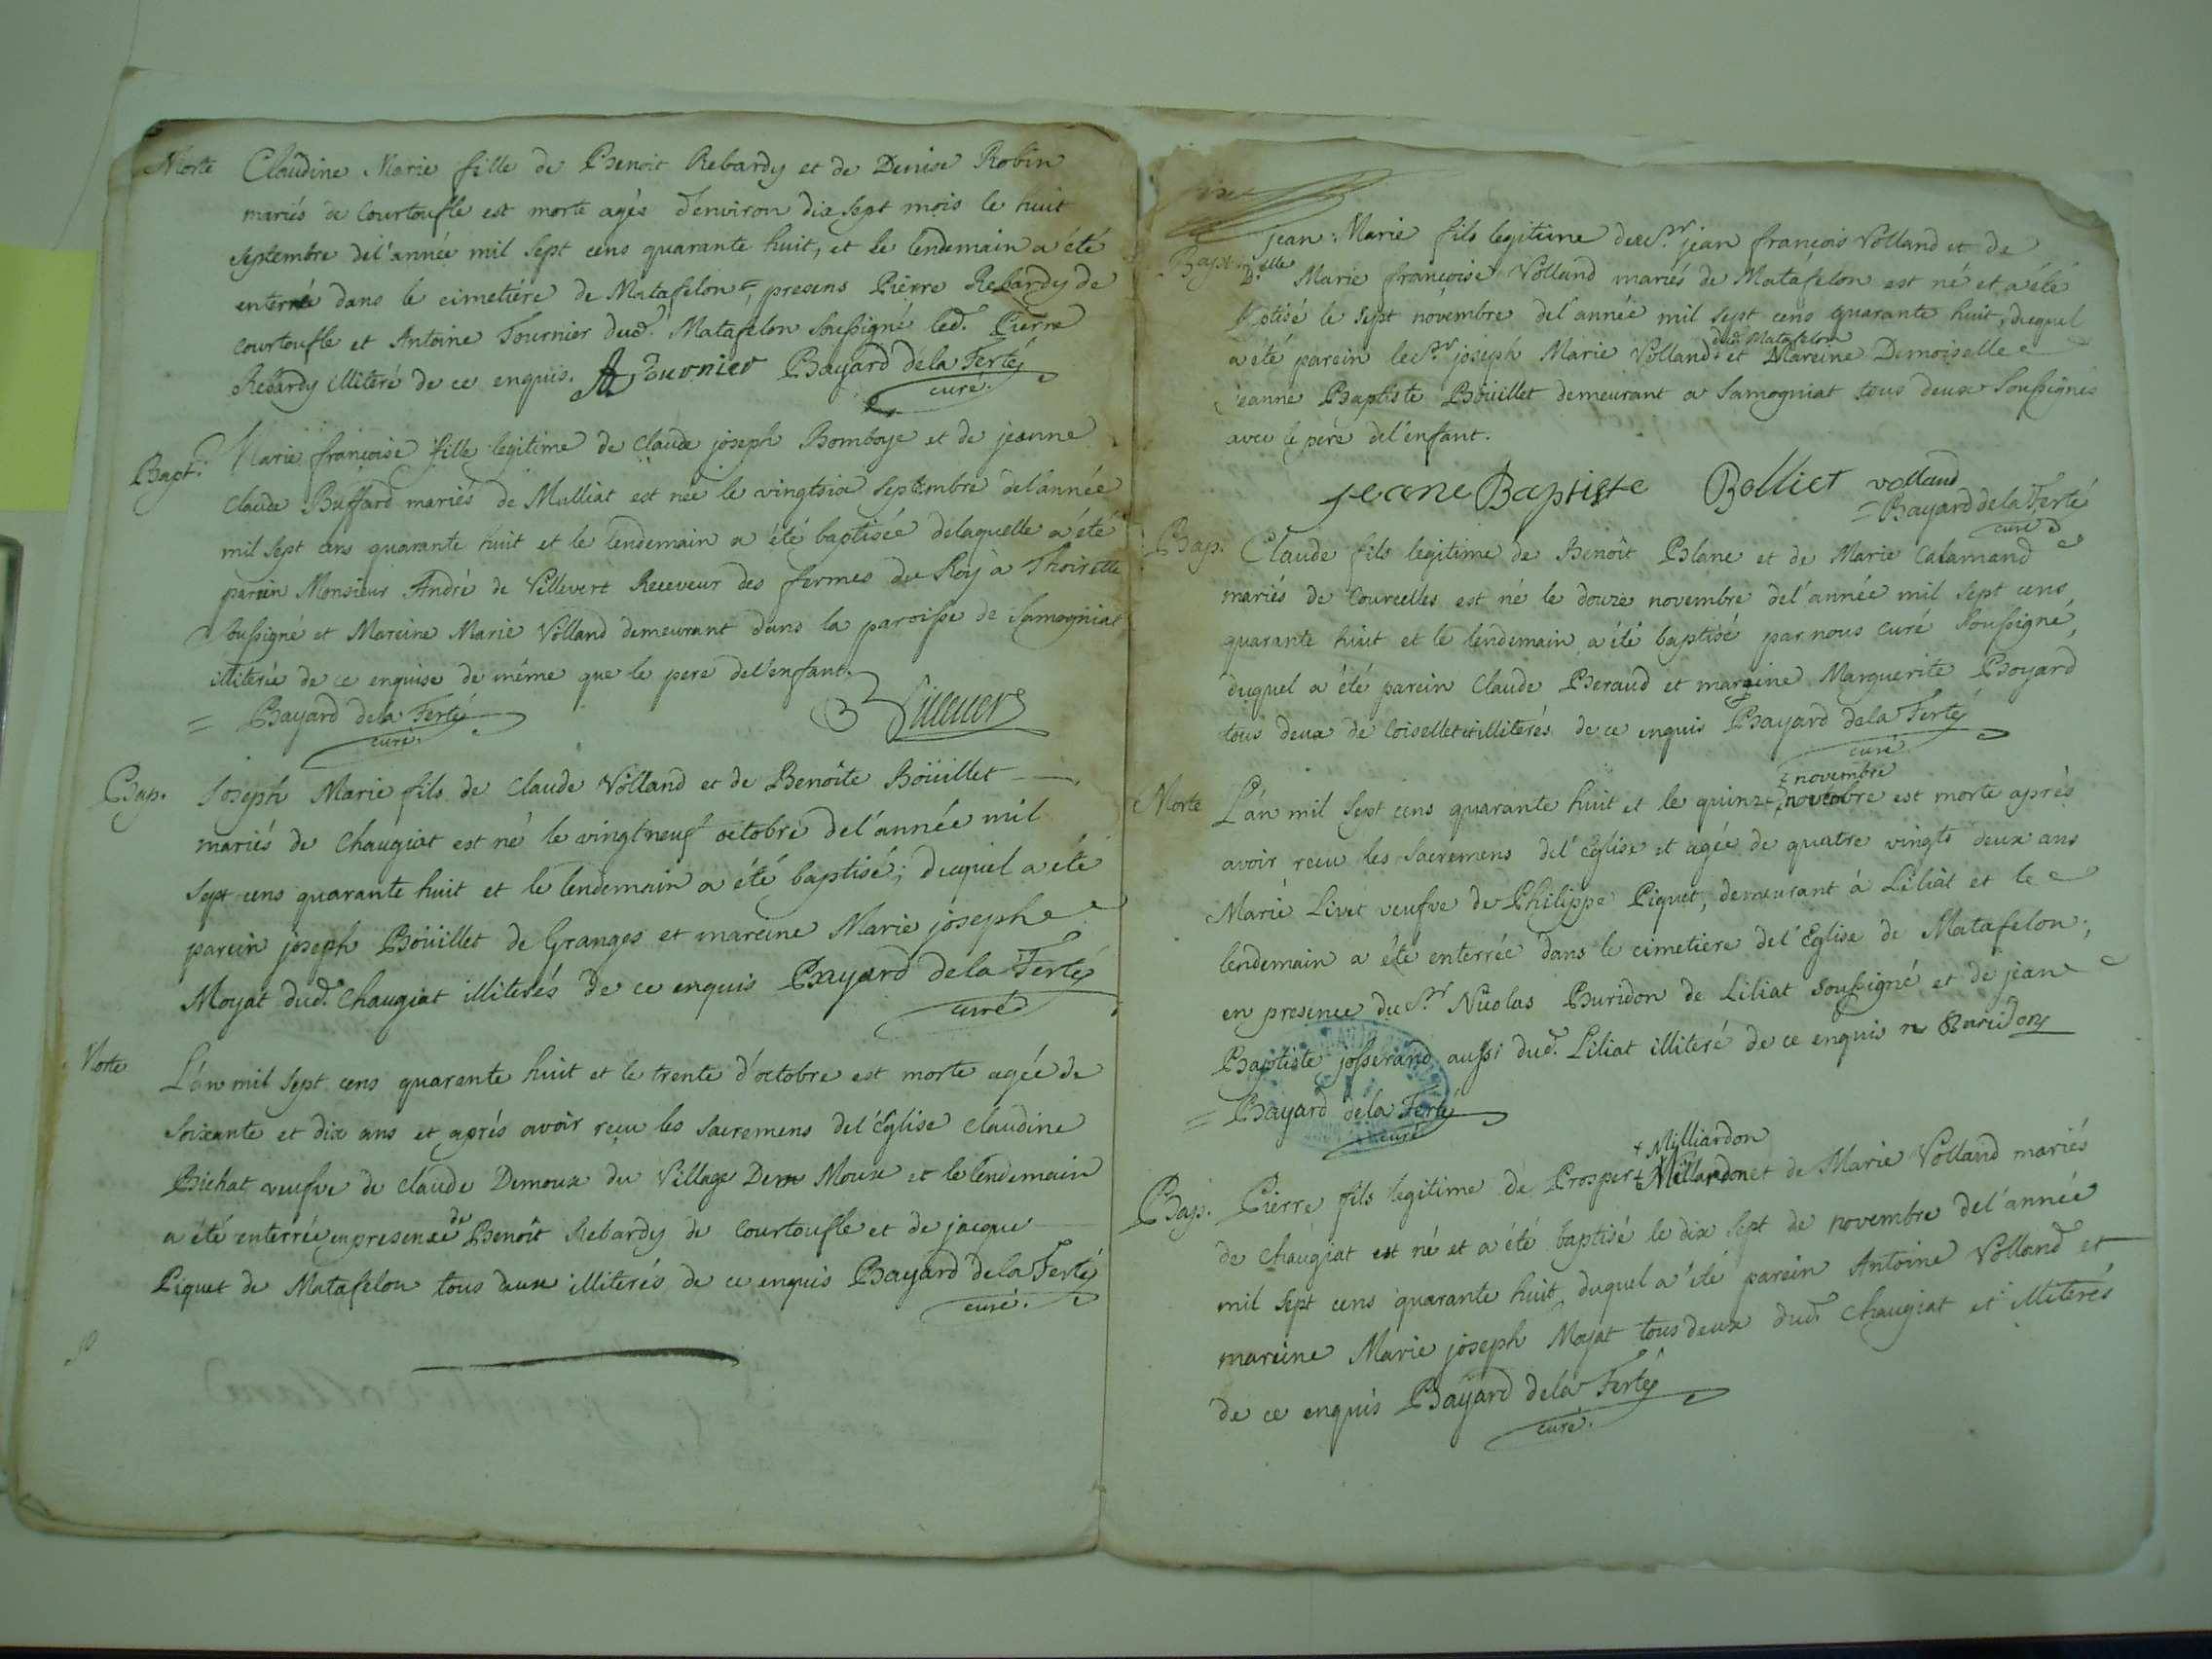 Morte Claudine Marie fille de Benoit Rebardy et de Denise Robin
mariés de Courtoufle est morte agés d'environ dix sept mois le huit
septembre de l'année mil sept cens quarante huit, et le lendemain a été
enterrée dans le cimetiére de Matafelon, presens Pierre Rebardy de
courtoufle et Antoine Tournier dud. Matafelon soussigné led. Pierre
Rebardy illiteré de ce enquis. A Tournier Bayard dela Ferté
curé.
Bapt. Marie françoise fille legitime de Claude joseph Bomboye et de jeanne
Claude Buffard mariés de Mulliat est née le vingtsix septembre de l'année
mil sept cens quarante huit et le lendemain a été baptisée delaquelle a été
parein Monsieur André de Villevert Receveur des fermes du Roÿ à Thoirette
soussigné et Mareine Marie Volland demeurant dans la paroisse de Samogniat
illiterée de ce enquise de même que le pere del'enfant.
= Bayard dela Ferté
curé.
Bap. Joseph Marie fils de Claude Volland et de Benoîte Boüillet
mariés de Chaugiat est né le vingtneuf octobre del'année mil
sept cens quarante huit et le lendemain a été baptisé; duquel a été
parein joseph Boüillet de Granges et mareine Marie joseph
Moyat dud. Chaugiat illiterés de ce enquis Bayard dela Ferté
curé
Morte L'an mil sept cens quarante huit et le trente d'octobre est morte agée de
soixante et dix ans et aprés avoir recu les sacremens del'Eglise Claudine
Bichat veufve de claude Demoux du Village Moux et le lendemain
a été enterrée en presence de Benoît Rebardy de Courtoufle et de jacque
Piquet de Matafelon tous deux illiterés de ce enquis Bayard dela Ferté
curé.
jean Marie fils legitime de Sr. jean françois Volland et de
Bapt. Delle Marie françoise Volland mariés de Matafelon est né et a été
le sept novembre del'année mil sept cens quarante huit, duquel
dud. Matafelon
a été parein le Sr. joseph Marie Volland et Mareine Demoiselle
jeanne Baptiste Boüillet demeurant a Samogniat tous deux soussignés
avec le pere del'enfant.
jeane Baptiste Bolliet volland
= Bayard dela Ferté
curé
Bap. Claude fils legitime de Benoît Blanc et de Marie Calamand
mariés de Courcelles est né le douze novembre del'année mil sept cens
quarante huit et le lendemain a été baptisé par nous curé soussigné,
duquel a été parein Claude Beraud et mareine Marguerite Boyard
tous deux de Coiselet et illiterés de ce enquis Bayard dela Ferté
curé
+ novembre
Morte L'an mil sept cens quarante huit et le quinze est morte aprés
avoir recu les sacremens del'Eglise et agée de quatre vingts deux ans
Marie Livet veufve de Philippe Piquet, demeurant à Liliat et le
lendemain a été enterrée dans le cimetiere del'Eglise de Matafelon;
en presence du Sr. Nicolas Buridon de Liliat soussigné et de jean
Baptiste josserand aussi dud. Liliat illiteré de ce enquis n Buridon
= Bayard dela Ferté
curé
+ Milliardon
Bap. Pierre fils legitime de Prosper + Millardon et de Marie Volland mariés
de Chaugiat est né et a été baptisé le dix sept de novembre del'année
mil sept cens quarante huit duquel a été parein Antoine Volland et
mareine Marie joseph Moyat tous deux dud. Chaugiat et illiterés
de ce enquis Bayard dela Ferté
curé.